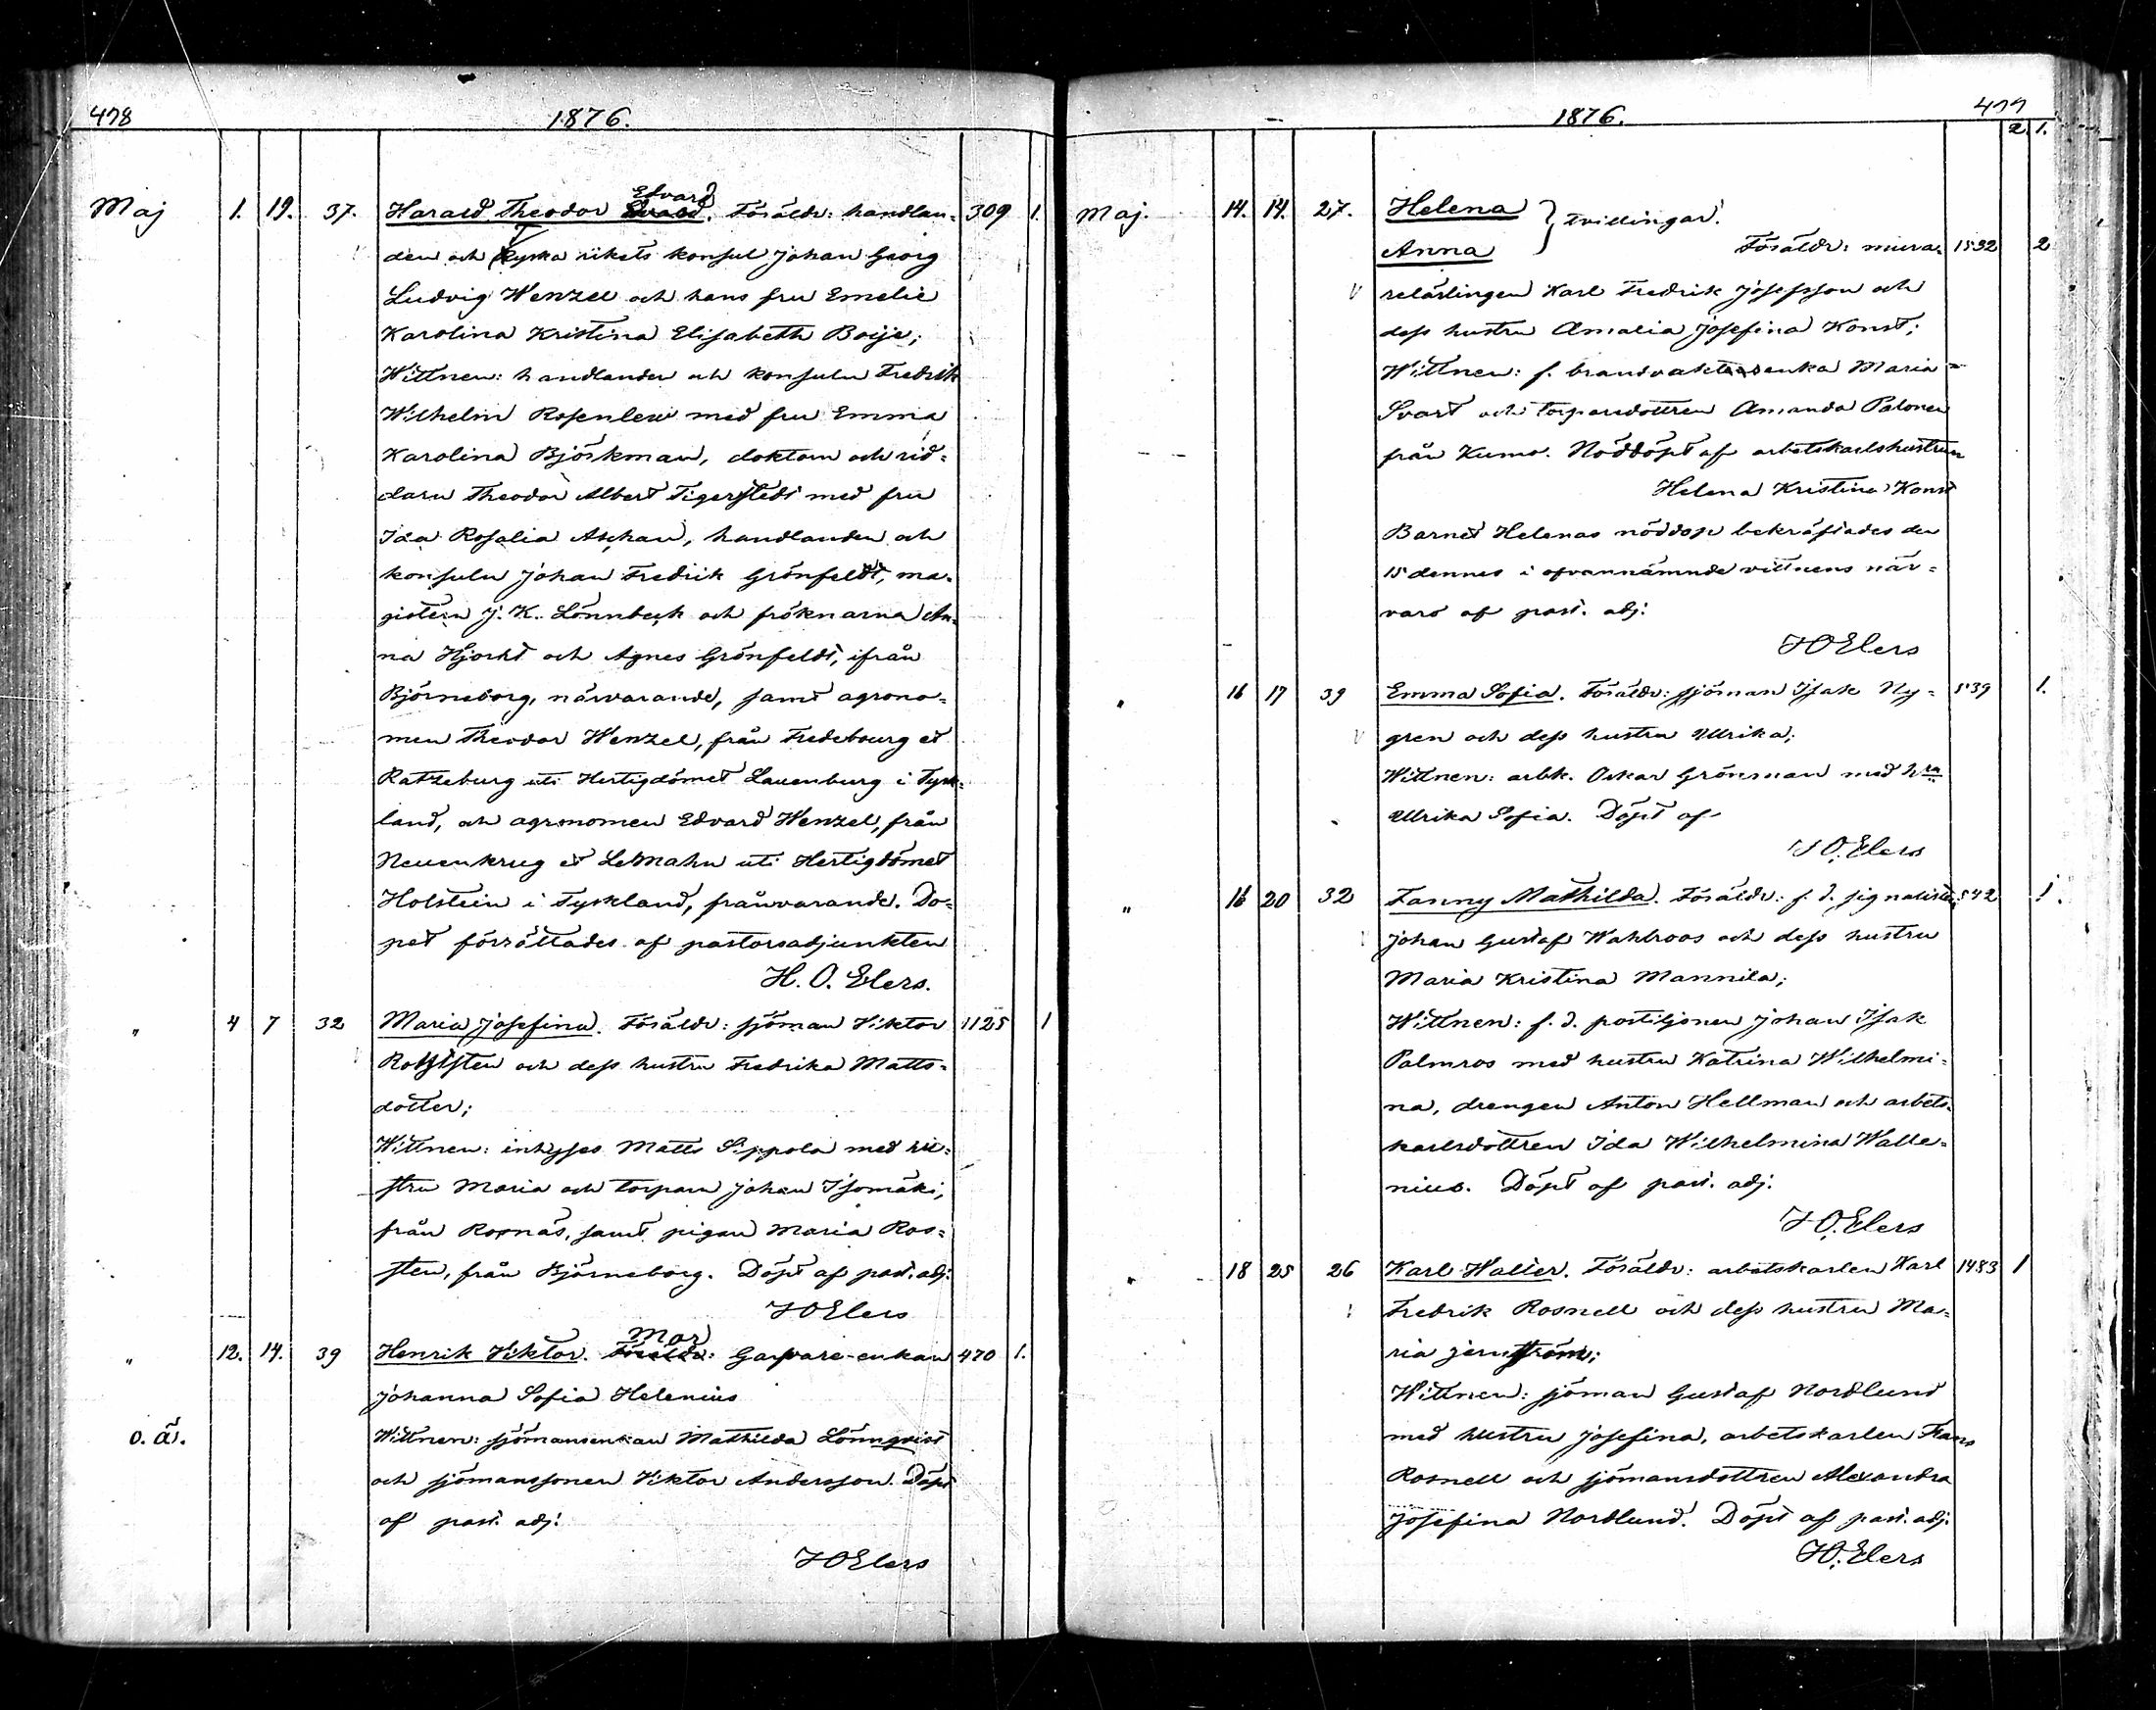 478
1876.
Maj 1. 19. 37. Harald Theodor Edvard. Föräldr: handlan- 309 1.
den och Tyska rikets konsul Johan Georg
Ludvig Wenzel och hans fru Emelie
Karolina Kristina Elisabeth Boije;
Wittnen: handlanden och konsuln Fredrik
Wilhelm Rosenlew med fru Emma
Karolina Björkman, doktorn och rid-
daren Theodor Albert Tigerstedt med fru
Ida Rosalia Aschan, handlanden och
konsuln Johan Fredrik Grönfeldt, ma-
gistern J. K. Lönnbeck och fröknarna An-
na Hjorht och Agnes Grönfeldt, ifrån
Björneborg, närvarande, samt agrono-
men Theodor Wenzel, från Fredebourg et
Ratzeburg uti Hertigdömet Lauenburg i Tysk-
land, och agronomen Edvard Wenzel, från
Neuenkrug et uti Hertigdömet
Holstein i Tyskland, frånvarande. Do-
pet förrättades af pastorsadjunkten
H. O. Elers.
" 4 7 32 Maria Josefina. Föräldr: sjöman Viktor 1125 1
och dess hustru Fredrika Matts-
dotter;
Wittnen: inhyses Matts Seppola med hu-
stru Maria och torparn Johan Isomäki,
från Rosnäs, samt pigan Maria Ros-
sten, från Björneborg. Döpt af past. adj.
H O Elers
" 12. 14. 39 Henrik Viktor. Mor: Garfvare-enkan 470 1.
Johanna Sofia Helenius
o. ä. Wittnen: sjömansenkan Mathilda Lönnqvist
och sjömanssonen Viktor Andersson. Döpt
af past. adj.
H O Elers
1876.
477
2. 1.
Maj. 14. 14. 27. Helena } tvillingar.
Anna Föräldr: mura- 1532 2
relärlingen Karl Fredrik Josefsson och
dess hustru Amalia Josefina Konst;
Wittnen: f. brandvaktsenka Maria
Svart och torparedottren Amanda Palonen
från Kumo. Nöddöpt af arbetskarlshustrun
Helena Kristina Konst
Barnet Helenas nöddop bekräftades den
15 dennes i ofvannämnde vittnens när-
varo af past. adj:
H O Elers
" 16 17 39 Emma Sofia. Föräldr: sjöman Isak Ny- 539 1.
gren och dess hustru Ulrika;
Wittnen: arbk. Oskar Grönman med hru
Ulrika Sofia. Döpt af
H O. Elers
" 16 20 32 Fanny Mathilda. Föräldr: f. d. signalisten 542 1.
Johan Gustaf Wahlroos och dess hustru
Maria Kristina Mannila;
Wittnen: f. d. postiljonen Johan Isak
Palmros med hustru Katrina Wilhelmi-
na, drengen Anton Hellman och arbets-
karlsdottren Ida Wilhelmina Walle-
nius. Döpt af past. adj.
H O. Elers
" 18 25 26 Karl Walter. Föräldr: arbetskarlen Karl 1483 1
Fredrik Rosnell och dess hustru Ma-
ria Jernström;
Wittnen: sjöman Gustaf Nordlund
med hustru Josefina, arbetskarlen Frans
Rosnell och sjömansdottren Alexandra
Josefina Nordlund. Döpt af past. adj.
H O. Elers